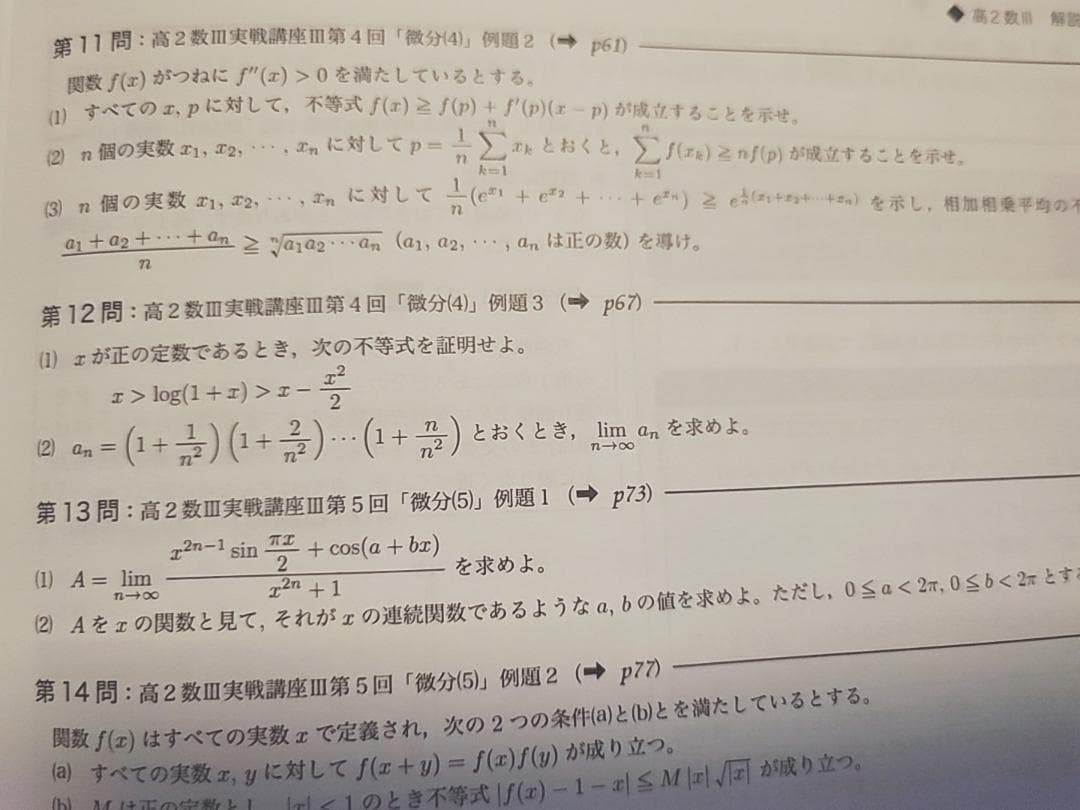 ◆ 高2数Ⅲ 解説
第11問：高2数Ⅲ実戦講座Ⅲ第4回「微分(4)」例題2 (➡ p61)
関数 f(x) がつねに f″(x) > 0 を満たしているとする。
(1) すべての x, p に対して，不等式 f(x) ≧ f(p) + f′(p)(x − p) が成立することを示せ。
(2) n 個の実数 x₁, x₂, ⋯, xₙ に対して p = 1/n ∑_{k=1}^{n} xₖ とおくと，∑_{k=1}^{n} f(xₖ) ≧ nf(p) が成立することを示せ。
(3) n 個の実数 x₁, x₂, ⋯, xₙ に対して 1/n (e^{x₁} + e^{x₂} + ⋯ + e^{xₙ}) ≧ e^{(x₁+x₂+⋯+xₙ)} を示し，相加相乗平均の不
(a₁ + a₂ + ⋯ + aₙ)/n ≧ ⁿ√(a₁a₂⋯aₙ) (a₁, a₂, ⋯, aₙ は正の数) を導け。
第12問：高2数Ⅲ実戦講座Ⅲ第4回「微分(4)」例題3 (➡ p67)
(1) x が正の定数であるとき，次の不等式を証明せよ。
x > log(1 + x) > x − x²/2
(2) aₙ = (1 + 1/n²)(1 + 2/n²)⋯(1 + n/n²) とおくとき，lim_{n→∞} aₙ を求めよ。
第13問：高2数Ⅲ実戦講座Ⅲ第5回「微分(5)」例題1 (➡ p73)
(1) A = lim_{n→∞} (x^{2n−1} sin πx/2 + cos(a + bx))/(x^{2n} + 1) を求めよ。
(2) A を x の関数と見て，それが x の連続関数であるような a, b の値を求めよ。ただし，0 ≦ a < 2π, 0 ≦ b < 2π とする
第14問：高2数Ⅲ実戦講座Ⅲ第5回「微分(5)」例題2 (➡ p77)
関数 f(x) はすべての実数 x で定義され，次の2つの条件(a)と(b)とを満たしているとする。
(a) すべての実数 x, y に対して f(x + y) = f(x)f(y) が成り立つ。
(b) M は正の定数とし，|x| < 1 のとき不等式 |f(x) − 1 − x| ≦ M|x|√|x| が成り立つ。